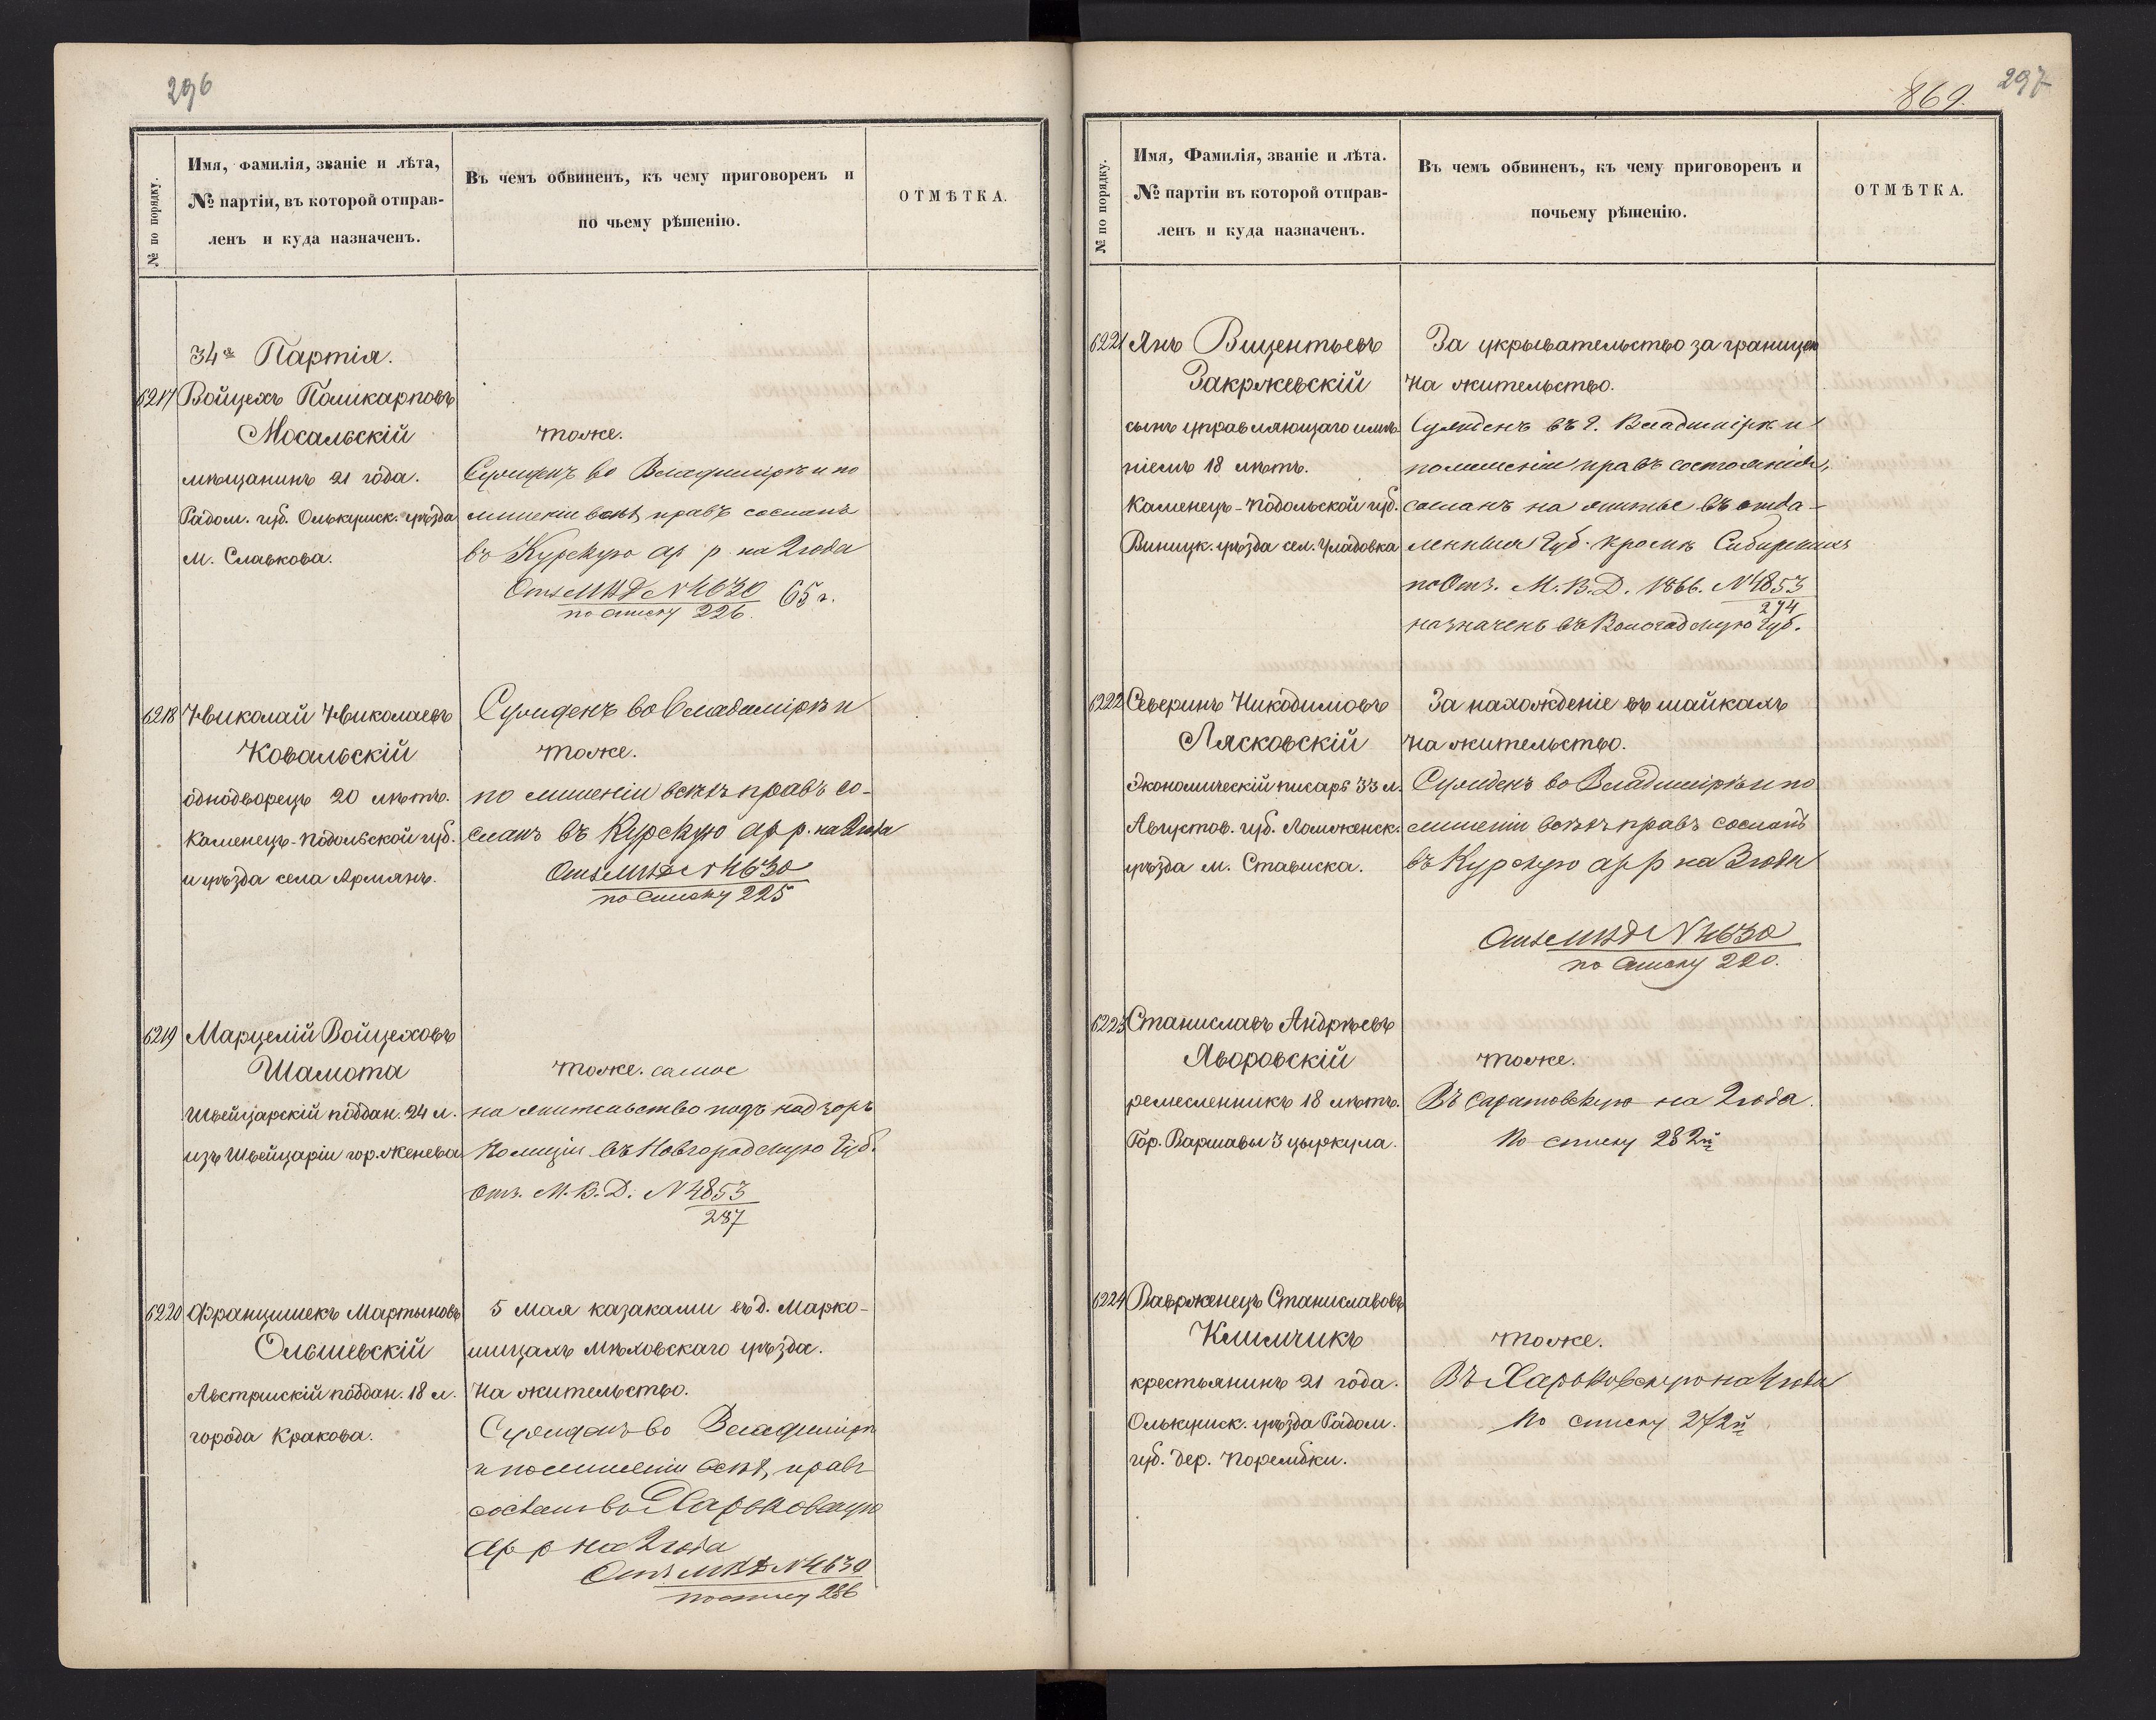 296
№ по порядку.
Имя, Фамилія, званіе и лѣта,
№ партіи, въ которой отправ-
ленъ и куда назначенъ.
Въ чемъ обвиненъ, къ чему приговоренъ и
по чьему рѣшенію.
ОТМѢТКА.
34я Партія.
6217 Войцехъ Поликарповъ
Мосальскій
мѣщанинъ 21 года.
Радом. губ. Олькушск. уѣзда
м. Славкова.
тоже.
Сужденъ во Владимірѣ и по
лишеніи всѣхъ правъ сосланъ
въ Курскую ар р на 2 года
Отз МВД № 4630 65 г.
по списку 226.
6218 Николай Николаевъ
Ковальскій
однодворецъ 20 лѣтъ.
Каменецъ-Подольской губ.
и уѣзда села Армянъ.
Сужденъ во Владимірѣ и
тоже.
по лишеніи всѣхъ правъ со-
сланъ въ Курскую ар р. на 2 года
Отз МВД № 4630
по списку 225
6219 Марцелій Войцеховъ
Шамота
Швейцарскій поддан. 24 л.
изъ Швейцаріи гор. Женева
тоже. самое
на жительство подъ надзоръ
полиціи въ Новгородскую Губ.
Отз. М.В.Д. № 4853
287
6220 Францишекъ Мартыновъ
Ольшевскій
Австрійскій поддан. 18 л.
города Кракова.
5 Мая казаками въ д. Марко-
шицахъ Мѣховскаго уѣзда.
На жительство.
Сужденъ во Владимірѣ
и по лишеніи всѣхъ правъ
сосланъ въ Харьковскую
ар р на 2 года
Отз МВД № 4630
по списку 286
297
869.
№ по порядку.
Имя, Фамилія, званіе и лѣта.
№ партіи въ которой отправ-
ленъ и куда назначенъ.
Въ чемъ обвиненъ, къ чему приговоренъ и
почьему рѣшенію.
ОТМѢТКА.
6221 Янъ Вицентьевъ
Закржевскій
сынъ управляющаго имѣ-
ніемъ 18 лѣтъ.
Каменецъ-Подольской губ.
Виницк. уѣзда сел. Уладовка
За укрывательство за границею
на жительство.
Сужденъ въ г. Владимірѣ и
по лишеніи правъ состоянія,
сосланъ на житье въ отда-
ленныя Губ. кромѣ Сибирскихъ
по Отз. М.В.Д. 1866. № 4853
274
назначенъ въ Вологодскую Губ.
6222 Северинъ Никодимовъ
Лясковскій
Экономическій писарь 33 л.
Августов. губ. Ломженск.
уѣзда м. Стависка.
За нахожденіе въ шайкахъ
на жительство.
Сужденъ во Владимірѣ и по
лишеніи всѣхъ правъ сосланъ
въ Курскую ар р на 2 года
Отз МВД № 4630
по списку 220.
6223 Станиславъ Андрѣевъ
Яворовскій
ремесленникъ 18 лѣтъ.
Гор. Варшавы 3 цыркула.
тоже.
Въ Саратовскую на 2 года.
По списку 282й
6224 Вавржинецъ Станиславовъ
Климчикъ
крестьянинъ 21 года.
Олькушск. уѣзда Радом.
губ. дер. Порембки.
тоже.
Въ Харьковскую на года
По списку 272й